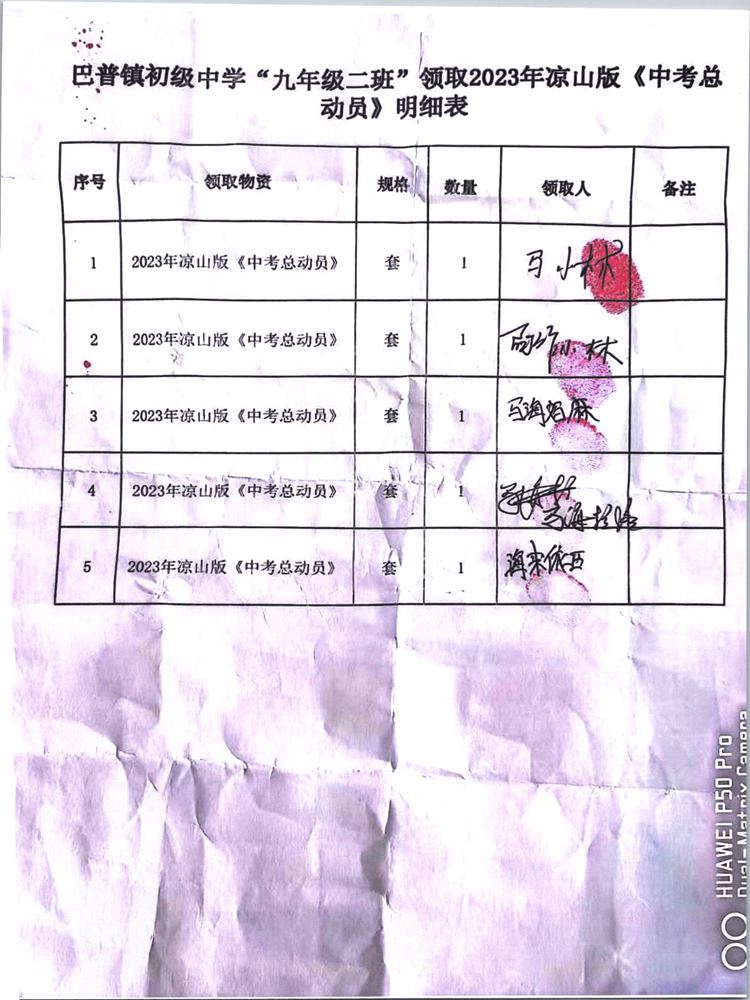 巴普镇初级中学“九年级二班”领取2023年凉山版《中考总
动员》明细表
序号 领取物资 规格 数量 领取人 备注
1 2023年凉山版《中考总动员》 套 1 马小林
2 2023年凉山版《中考总动员》 套 1 小林
3 2023年凉山版《中考总动员》 套 1 马海
4 2023年凉山版《中考总动员》 套 1 马海拉哈
5 2023年凉山版《中考总动员》 套 1 海来依西
HUAWEI P50 Pro
Dual-Matrix Camera